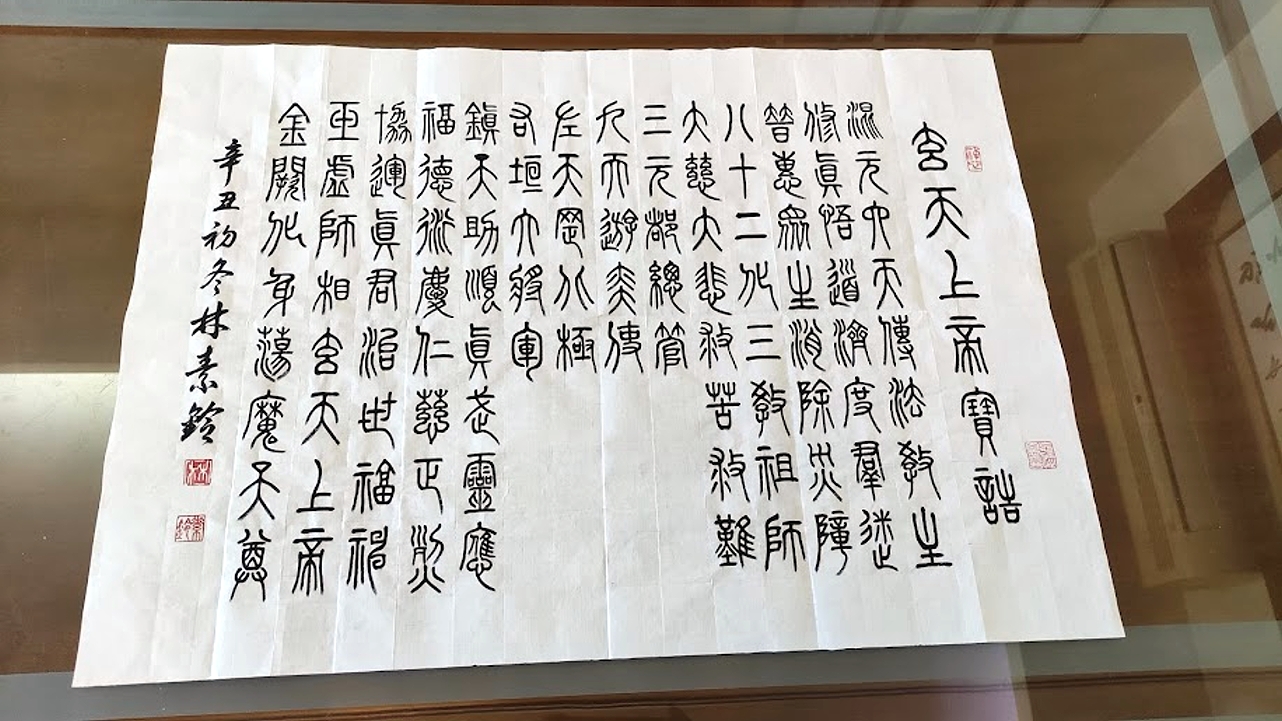 玄天上帝寶誥
混元六天傳法教主
修眞悟道濟度羣迷
普惠眾生消除災障
八十二化三教祖師
大慈大悲救苦救難
三元都總管
九天遊奕使
左天罡北極
右垣大將軍
鎮天助順眞武靈應
福德衍慶仁慈正烈
協運眞君治世福神
玉虛師相玄天上帝
金闕化身蕩魔天尊
辛丑初冬林素鈴
林
素鈴